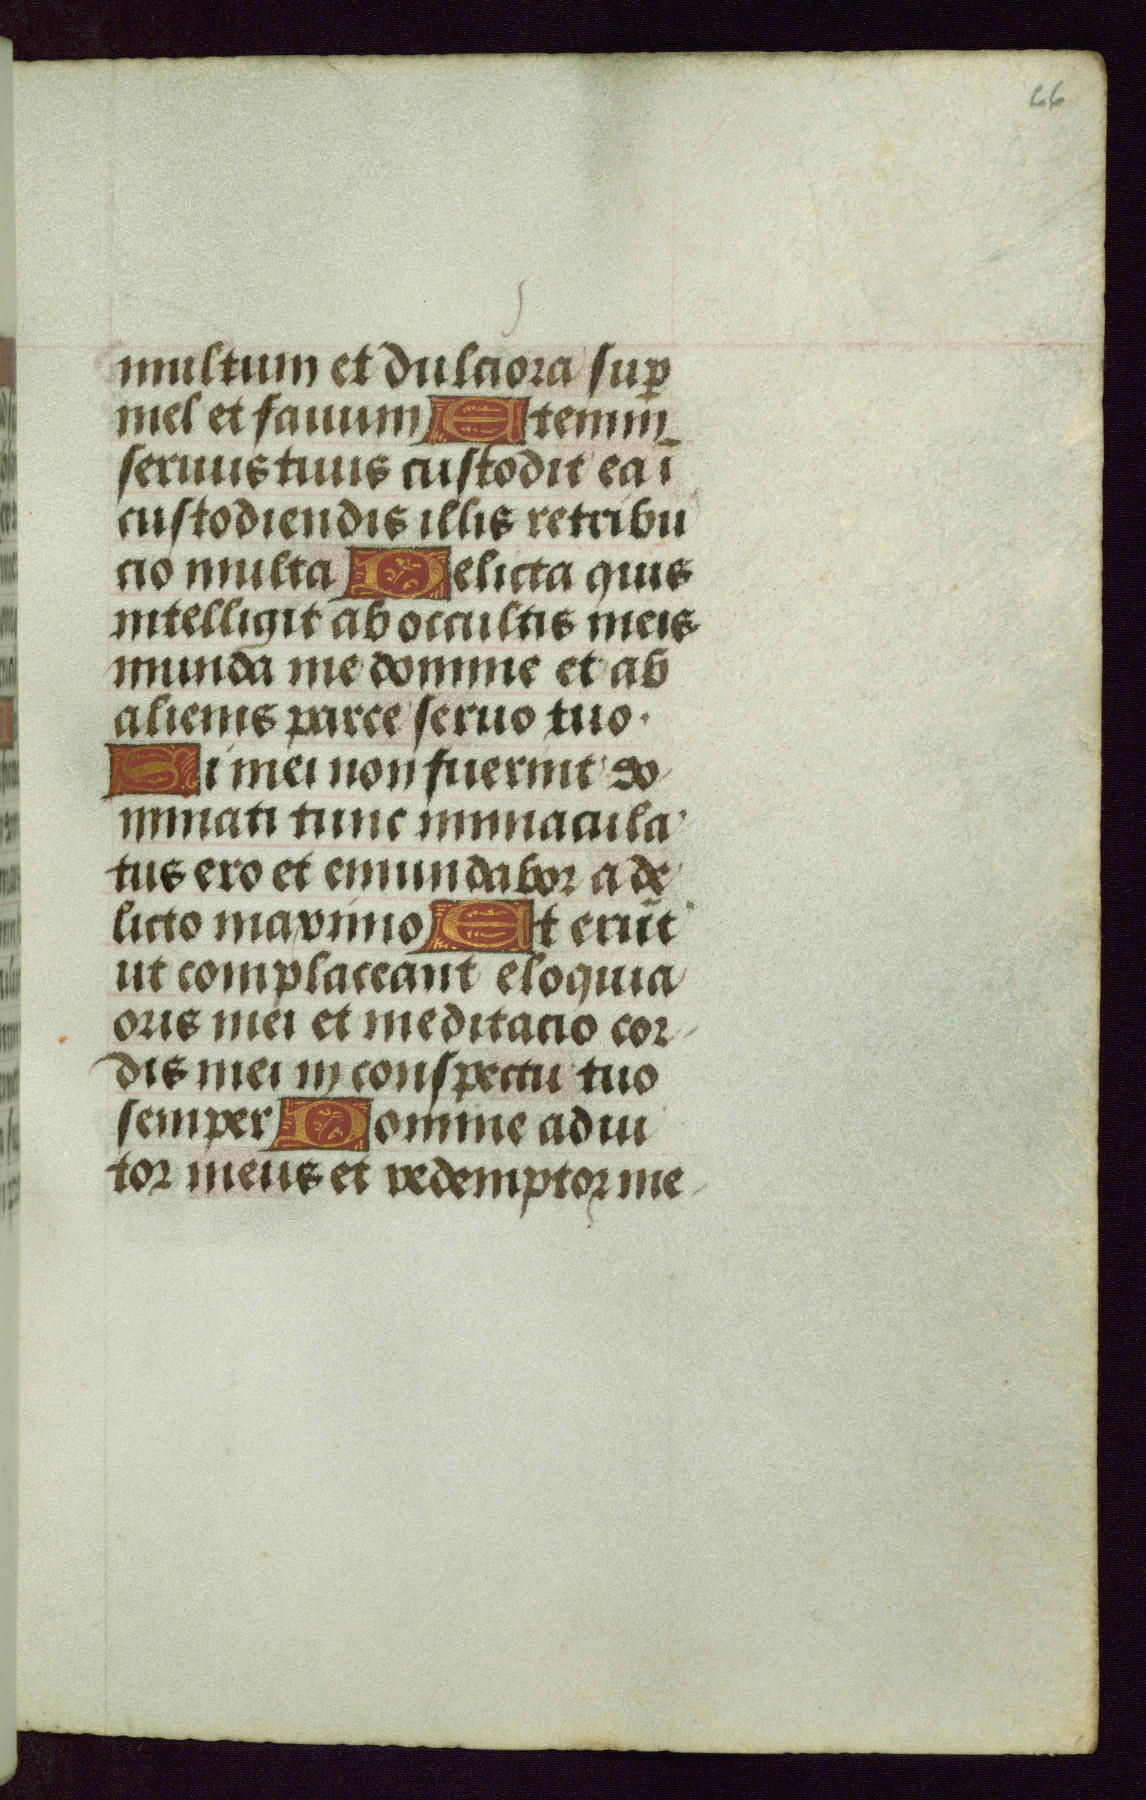 66
multum et dulciora sup̲
mel et fauum Etenim
seruus tuus custodit ea ī
custodiendis illis retribu
cio multa Delicta quis
intelligit ab occultis meis
munda me domine et ab
alienis parce seruo tuo.
Si mei non fuerint do
minati tunc immacula
tus ero et emundabor a de
licto maximo Et erūt
ut complaceant eloquia
oris mei et meditacio cor
dis mei in conspectu tuo
semper Domine adiu
tor meus et redemptor me